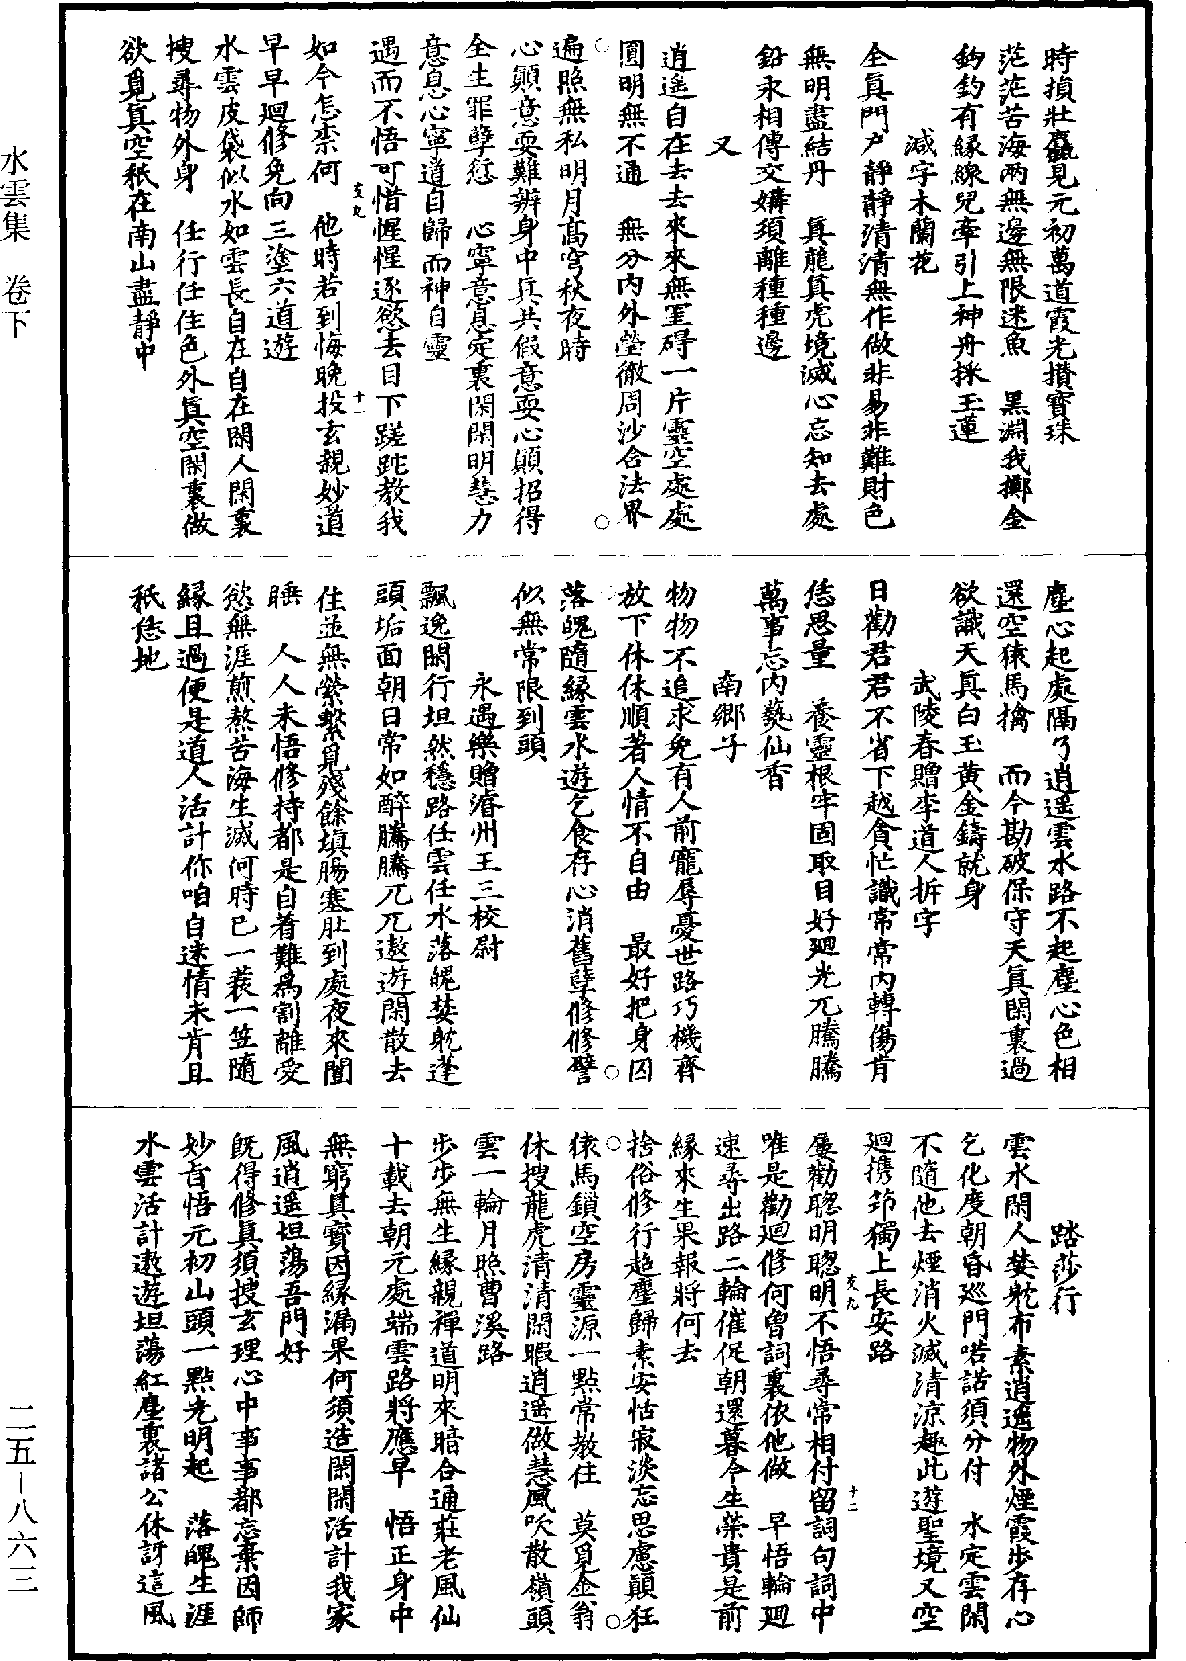 水雲集　卷下
二五—八六三
時損壯羸見元初萬道霞光攢寶珠
茫茫苦海兩無邊無限迷魚　黑淵我擲金
鈎釣有緣線兒牽引上神舟採玉蓮
減字木蘭花
全真門户靜靜清清無作做非易非難財色
無明盡結丹　真龍真虎境滅心忘知去處
鉛汞相傳交媾須離種種邊
又
逍遥自在去去來來無罣碍一片靈空處處
圓明無不通　無分内外瑩徹周沙合法界
遍照無私明月髙穹秋夜時
心顛意耍難辨身中真共假意耍心顛招得
全生罪孽愆　心寧意息定裏閑閑明慧力
意息心寧道自歸而神自靈
遇而不悟可惜惺惺逐慾去目下蹉跎教我
友九
十一
如今怎柰何　他時若到悔晚投玄親妙道
早早廻修免向三塗六道遊
水雲皮袋似水如雲長自在自在閑人閑裏
搜尋物外身　任行任住色外真空閑裏做
欲覓真空秖在南山盡靜中
塵心起處隔了逍遥雲水路不起塵心色相
還空猿馬擒　而今勘破保守天真閑裏過
欲識天真白玉黄金鑄就身
武陵春贈李道人拆字
日勸君君不省下越貪忙識常常内轉傷肯
恁思量　養靈根牢固取目好廻光兀騰騰
萬事忘内爇仙香
南鄉子
物物不追求免有人前寵辱憂世路巧機齊
放下休休順著人情不自由　最好把身囚
落魄隨緣雲水遊乞食存心消舊孽修修譬
似無常限到頭
永遇樂贈濬州王三校尉
飄逸閑行坦然穩路任雲任水落魄婪耽蓬
頭垢面朝日常如醉騰騰兀兀遨遊閑散去
住並無縈繫覓殘餘填腸塞肚到處夜來闇
睡　人人未悟修持都是自着難爲割離愛
慾無涯煎熬苦海生滅何時已一蓑一笠隨
緣且過便是道人活計你咱自迷情未肯且
秖恁地
踏莎行
雲水閑人婪耽布素逍遥物外煙霞步存心
乞化度朝昏廵門喏諾須分付　水定雲閑
不隨他去煙消火滅清涼趣此遊聖境又空
廻携筇獨上長安路
友九
十二
屢勸聰明聰明不悟尋常相付留詞句詞中
唯是勸廻修何曾詞裏依他做　早悟輪廻
速尋出路二輪催促朝還暮今生榮貴是前
緣來生果報將何去
捨俗修行超塵歸素安恬寂淡忘思慮顛狂
猿馬鎖空房靈源一點常教住　莫覓金翁
休搜龍虎清清閑暇逍遥做慧風吹散嶺頭
雲一輪月照曹溪路
步步無生緣親禪道明來暗合通莊老風仙
十載去朝元處端雲路將應早　悟正身中
無窮真寶因緣漏果何須造閑閑活計我家
風逍遥坦蕩吾門好
既得修真須搜玄理心中事事都忘棄因師
妙旨悟元初山頭一點光明起　落魄生涯
水雲活計遨遊坦蕩紅塵裏諸公休訝這風